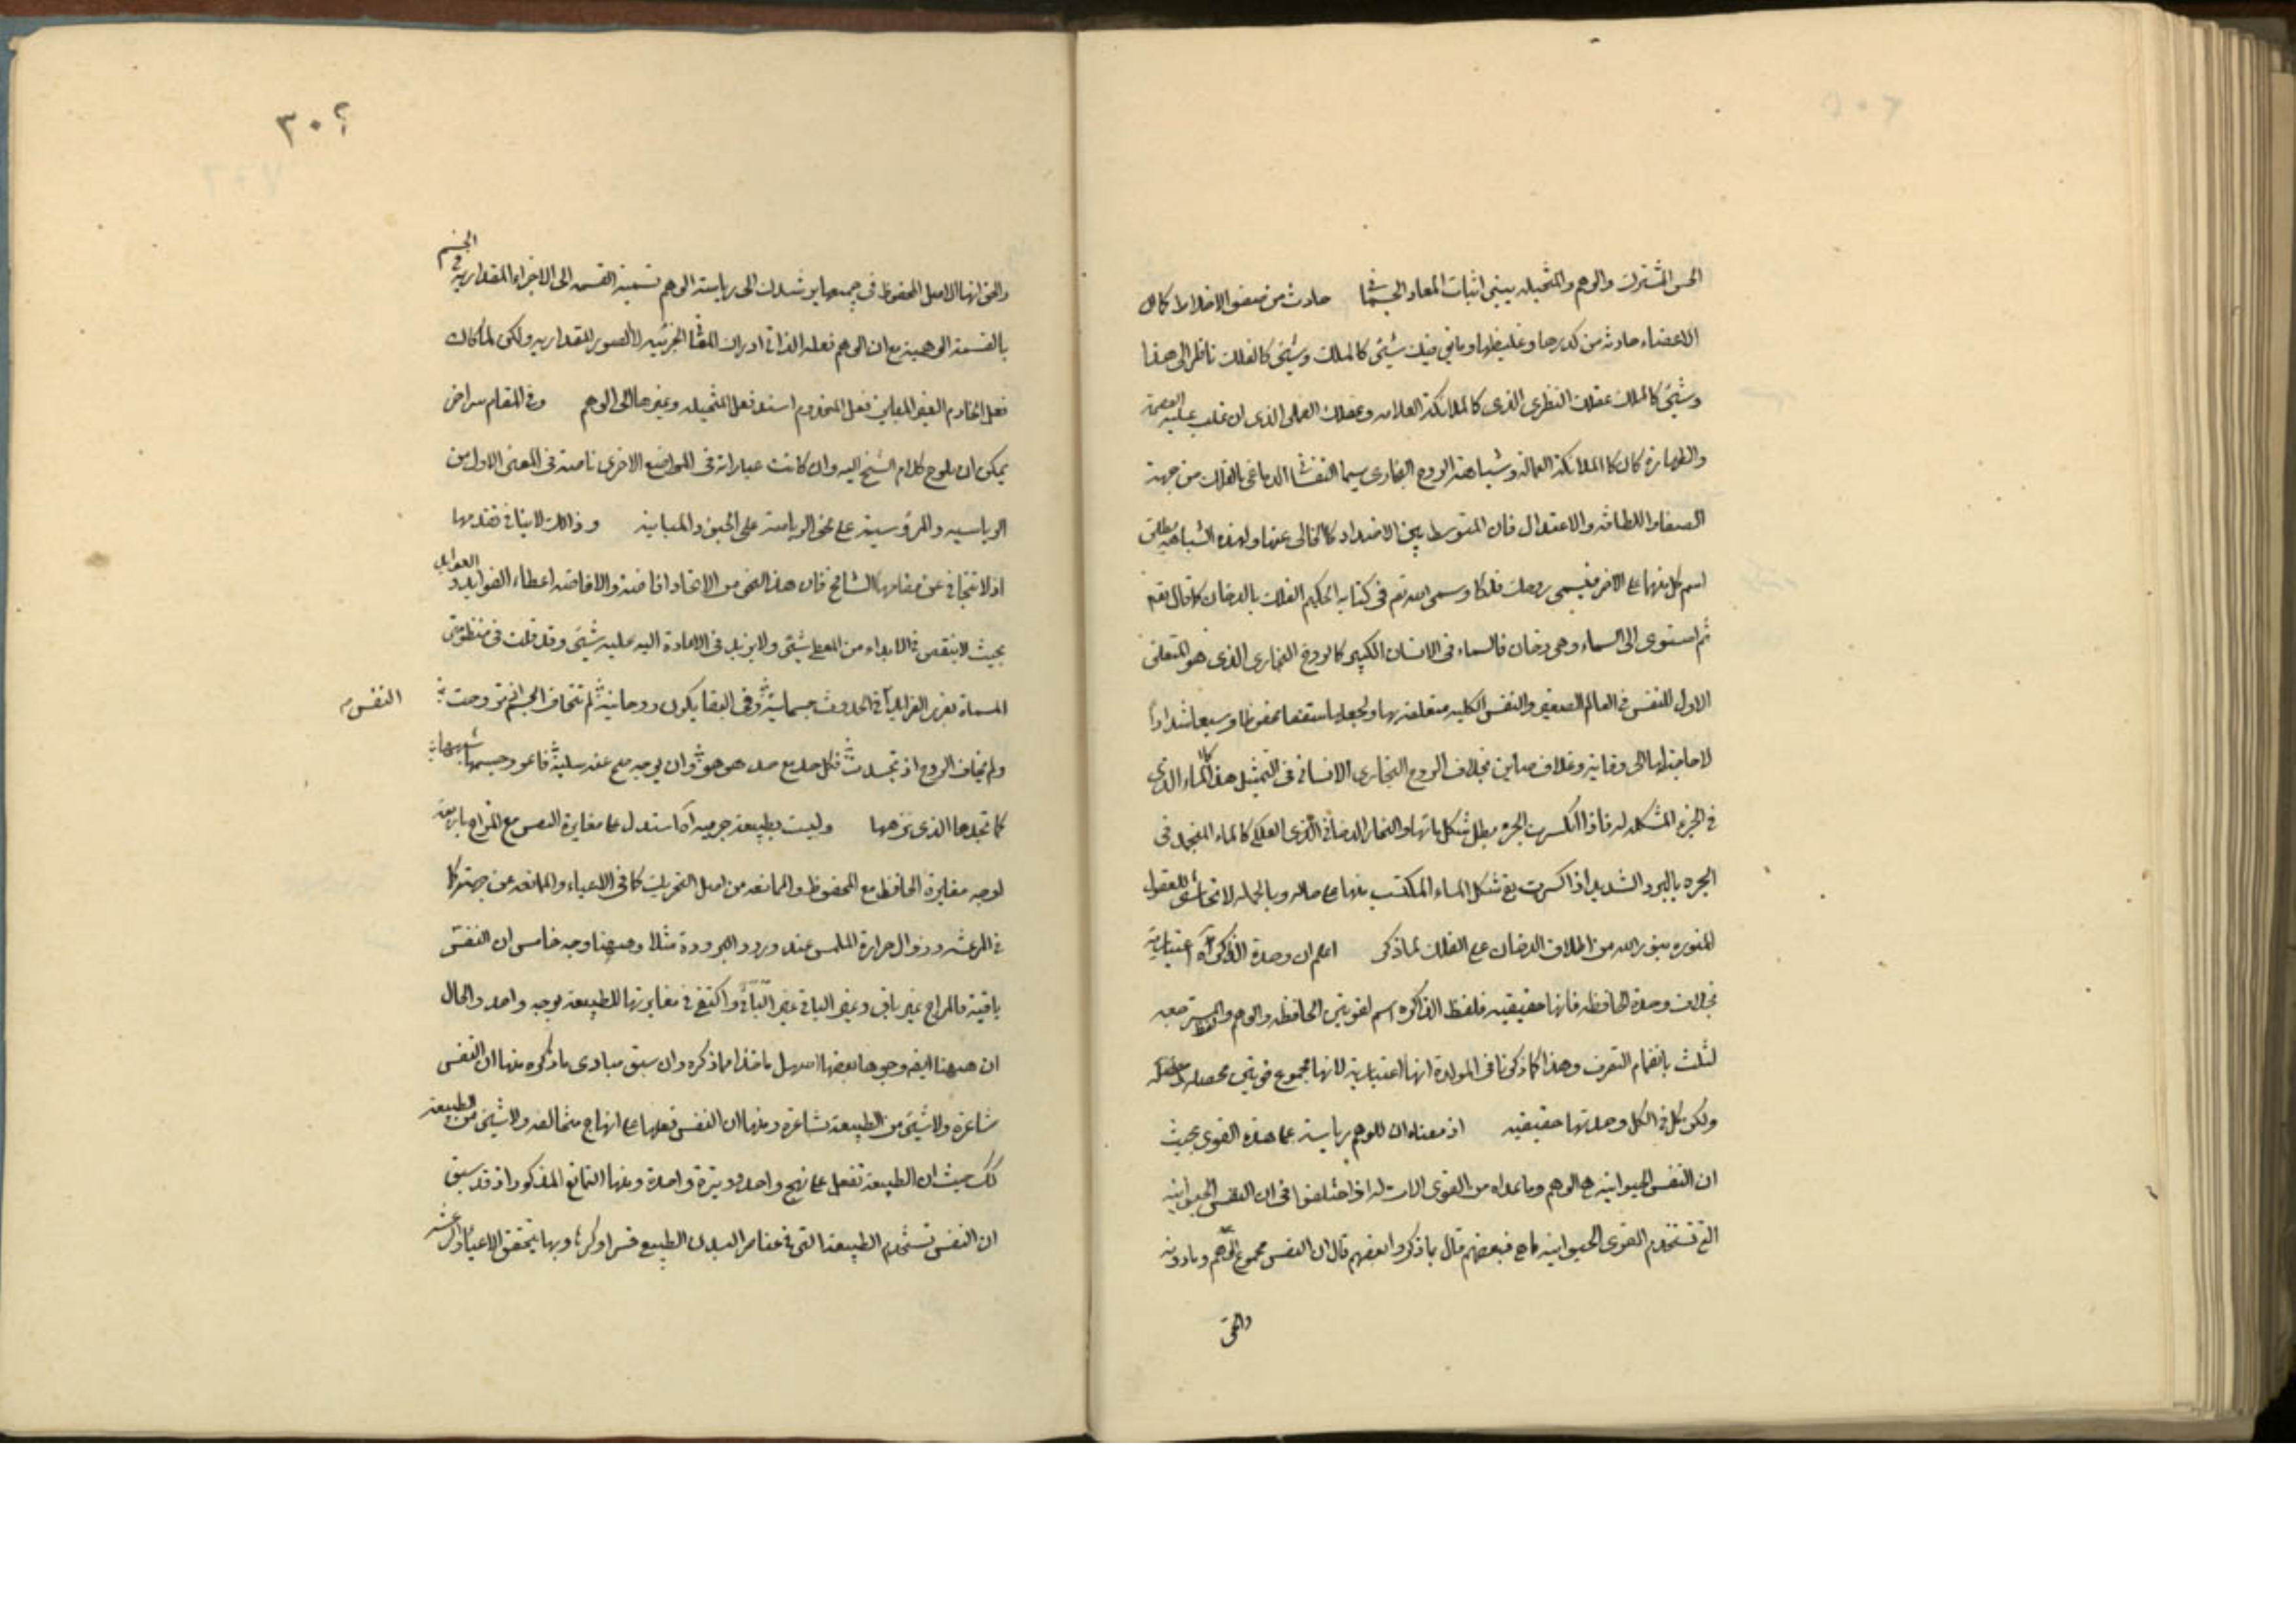 الحس المشترك والوهم والمتخيله يبتنى اثبات المعاد الجسمانى حادث من صفو الاخلاط كما ان
الاعضاء حادثه من كدرها وغليظها وما فى فيك شيئى كالملك وشيئى كالفلك ناظر الى هذا
وشيئى كالملك عقلك النظرى الذى كالملائكة العلامه وعقلك العملى الذى ان غلب عليه العصمة
والطهارة كان كالملائكة العماله وشباهة الروح البخارى سيما النفسانى الدماغى بالفلك من جهة
الصفاء واللطافه والاعتدال فان المتوسط بين الاضداد كالخالى عنها ولهذه الشباهه يطلق
اسم كل منهما على الاخر فيسمى روحك فلكا وسمى الله تعم فى كتابه الحكيم الفلك بالدخان كما قال تعم
ثم استوى الى السماء وهى دخان فالسماء فى الانسان الكبير كالروح البخارى الذى هو المتعلق
الاول للنفس فى العالم الصغير والنفس الكليه متعلقه بها ولجعلها سقفا محفوظا وسبعا شدادا
لا حاجة لها الى وقاية وغلاف صاين بخلاف الروح البخارى الانسانى فى التمثيل هذا كالماء الذى
فى الجرة المشكله له فاذا انكسرت الجره بطل شكل مائها والبخار الدخانى الذى الفلكى كالماء المنجمد فى
الجره بالبرد الشديد اذا كسرت بقى شكل الماء المكتسب منها على حاله وبالجمله لا تحاشى للعقول
المنوره بنور الله من اطلاق الدخان على الفلك لما ذكر اعلم ان وحدة الذاكرة اعتبارية
بخلاف وحدة الحافظه فانها حقيقيه فلفظ الذاكره اسم لقوتين الحافظه والوهم والمسترجعه
لثلث بانضمام التصرف وهذا كما ذكرنا فى المولدة انها اعتبارية لانها مجموع قوتين محصله ومفصله
ولكن كل فى الكل وحدتها حقيقيه اذ معناه ان للوهم رياسة على هذه القوى بحيث
ان النفس الحيوانية هى الوهم وما عداه من القوى الات له اذ اختلفوا فى ان النفس الحيوانيه
التى تستخدم القوى الحيوانيه ما هى فبعضهم قال ما ذكر وبعضهم قال ان النفس مجموع الوهم وما دونه
والحق
٣٠٤
والحق انها الاصل المحفوظ فى جميعها يرشدك الى رياسة الوهم تسمية القسمه الى الاجزاء المقداريه فى الجسم
بالقسمة الوهمية مع ان الوهم فعله الذاتى ادراك المعانى الجزئيه لا الصور المقداريه ولكن لما كان
فعل الخادم الغير المباين فعل المخدوم اسند فعل المتخيله وغيرها الى الوهم وفى المقام سر اخر
يمكن ان يلوح كلام الشيخ اليه وان كانت عباراته فى المواضع الاخرى ناصة فى المعنى الاول من
الرياسيه والمرؤسية على نحو الرياسة على الجيش والمباينة وذلك لا ينافى تقدمها
اذ لا تتجافى عن مقامها الشامخ فان هذا النحو من الاتحاد افاضة والافاضه اعطاء الفوايد والعوايد
بحيث لا ينقص فى الابداء من المعطى شيئى ولا يزيد فى الاعادة اليه عليه شيئى وقد قلت فى منظومتى
المسماة بغرر الفرايد النفس فى الحدوث جسمانية وفى البقا يكون روحانية لم تتجاف الجسم اذ تروحت
ولم تجاف الروح اذ تجسدت فكل حد مع حد هو هو وان بوجه صح عنه سلبا فاعور وجسمها شبهها
كما تجدها الذى نزهها وليست بطبيعة جرميه اه استدل على مغايرة النفس مع المزاج باربعة
اوجه مغايرة الحافظ مع المحفوظ والممانعه من اصل التحريك كما فى الاعياء والممانعه عن جهته كما
فى الرعشه وزوال حرارة الملمس عند ورود البرودة مثلا وههنا وجه خامس ان النفس
باقية والمزاج غير باقى وغير الباقى غير الباقى واكتفى فى مغايرتها للطبيعة بوجه واحد والحال
ان ههنا ايضا وجوها بعضها اسهل ماخذا مما ذكره وان سبق مبادى ما ذكره منها ان النفس
شاعرة ولا شيئى من الطبيعة بشاعرة ومنها ان النفس فعلها على انهاج متخالفه ولا شيئى من الطبيعة
كك حيث ان الطبيعة تفعل على نهج واحد ووتيرة واحدة ومنها التمانع المذكور اذ قد سبق
ان النفس تستخدم الطبيعة التى فى عناصر البدن الطبيع قسرا وكرها وبها يتحقق الاعياء والرعشه